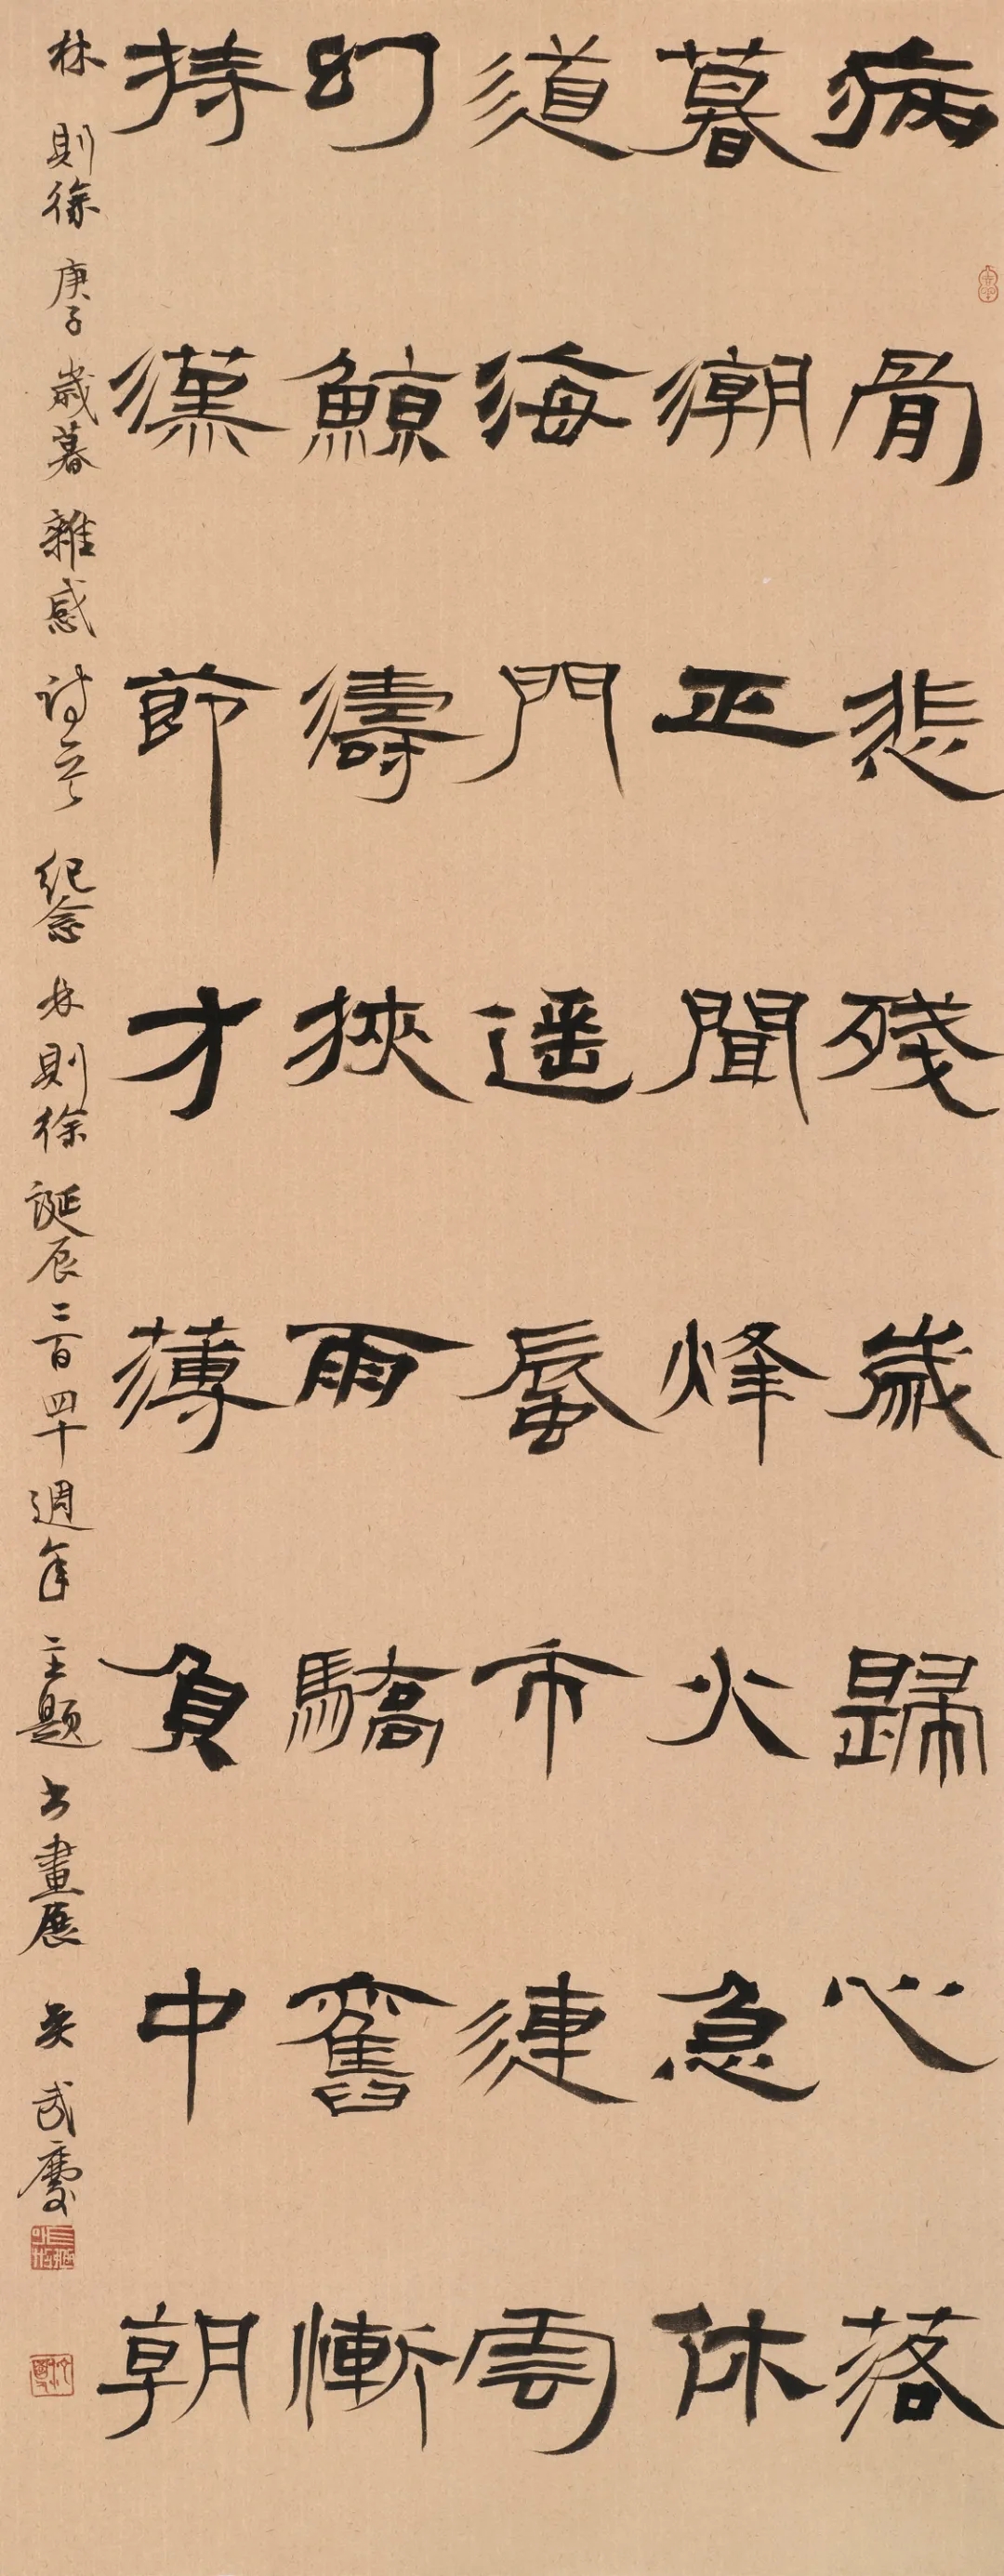 病骨悲殘歲歸心落
暮潮正聞烽火急休
道海門遥蜃市連雲
幻鯨濤挾雨驕舊慚
持漢節才薄負中朝
林則徐庚子歲暮雜感詩 紀念林則徐誕辰二百四十週年主題書畫展 吴武慶